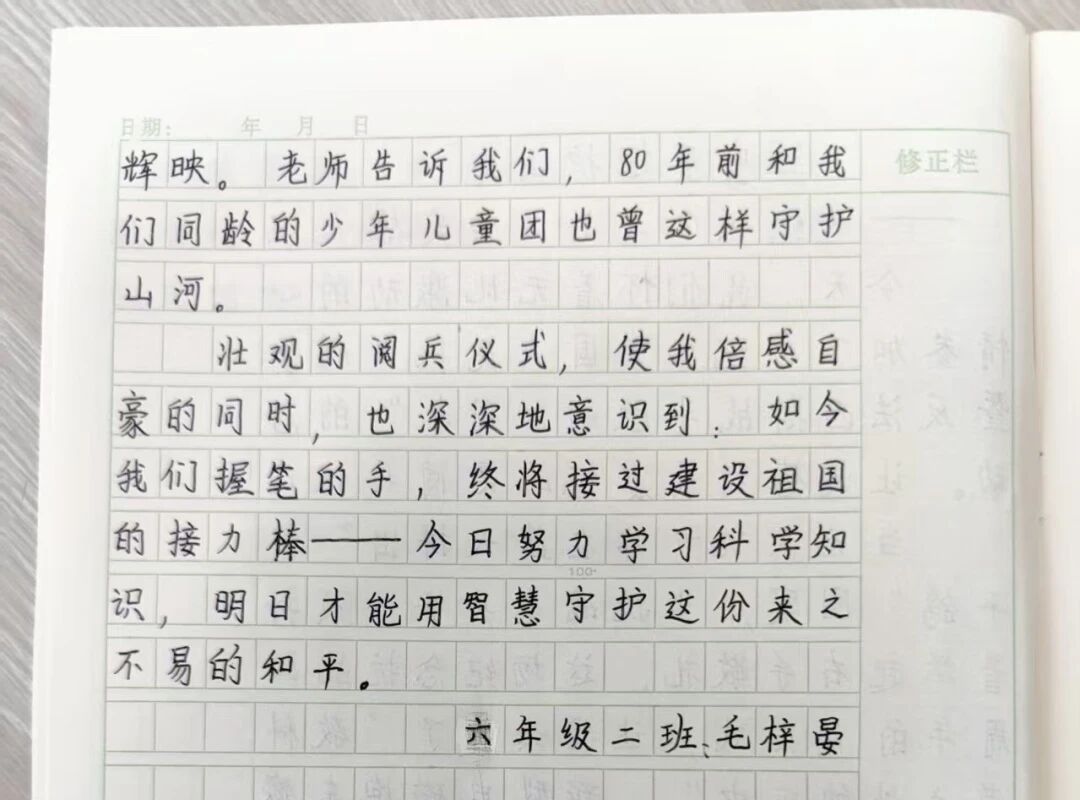 日期： 年 月 日
修正栏
辉映。老师告诉我们，80年前和我
们同龄的少年儿童团也曾这样守护
山河。
壮观的阅兵仪式，使我倍感自
豪的同时，也深深地意识到：如今
我们握笔的手，终将接过建设祖国
的接力棒——今日努力学习科学知
100
识，明日才能用智慧守护这份来之
不易的和平。
六年级二班：毛梓晏